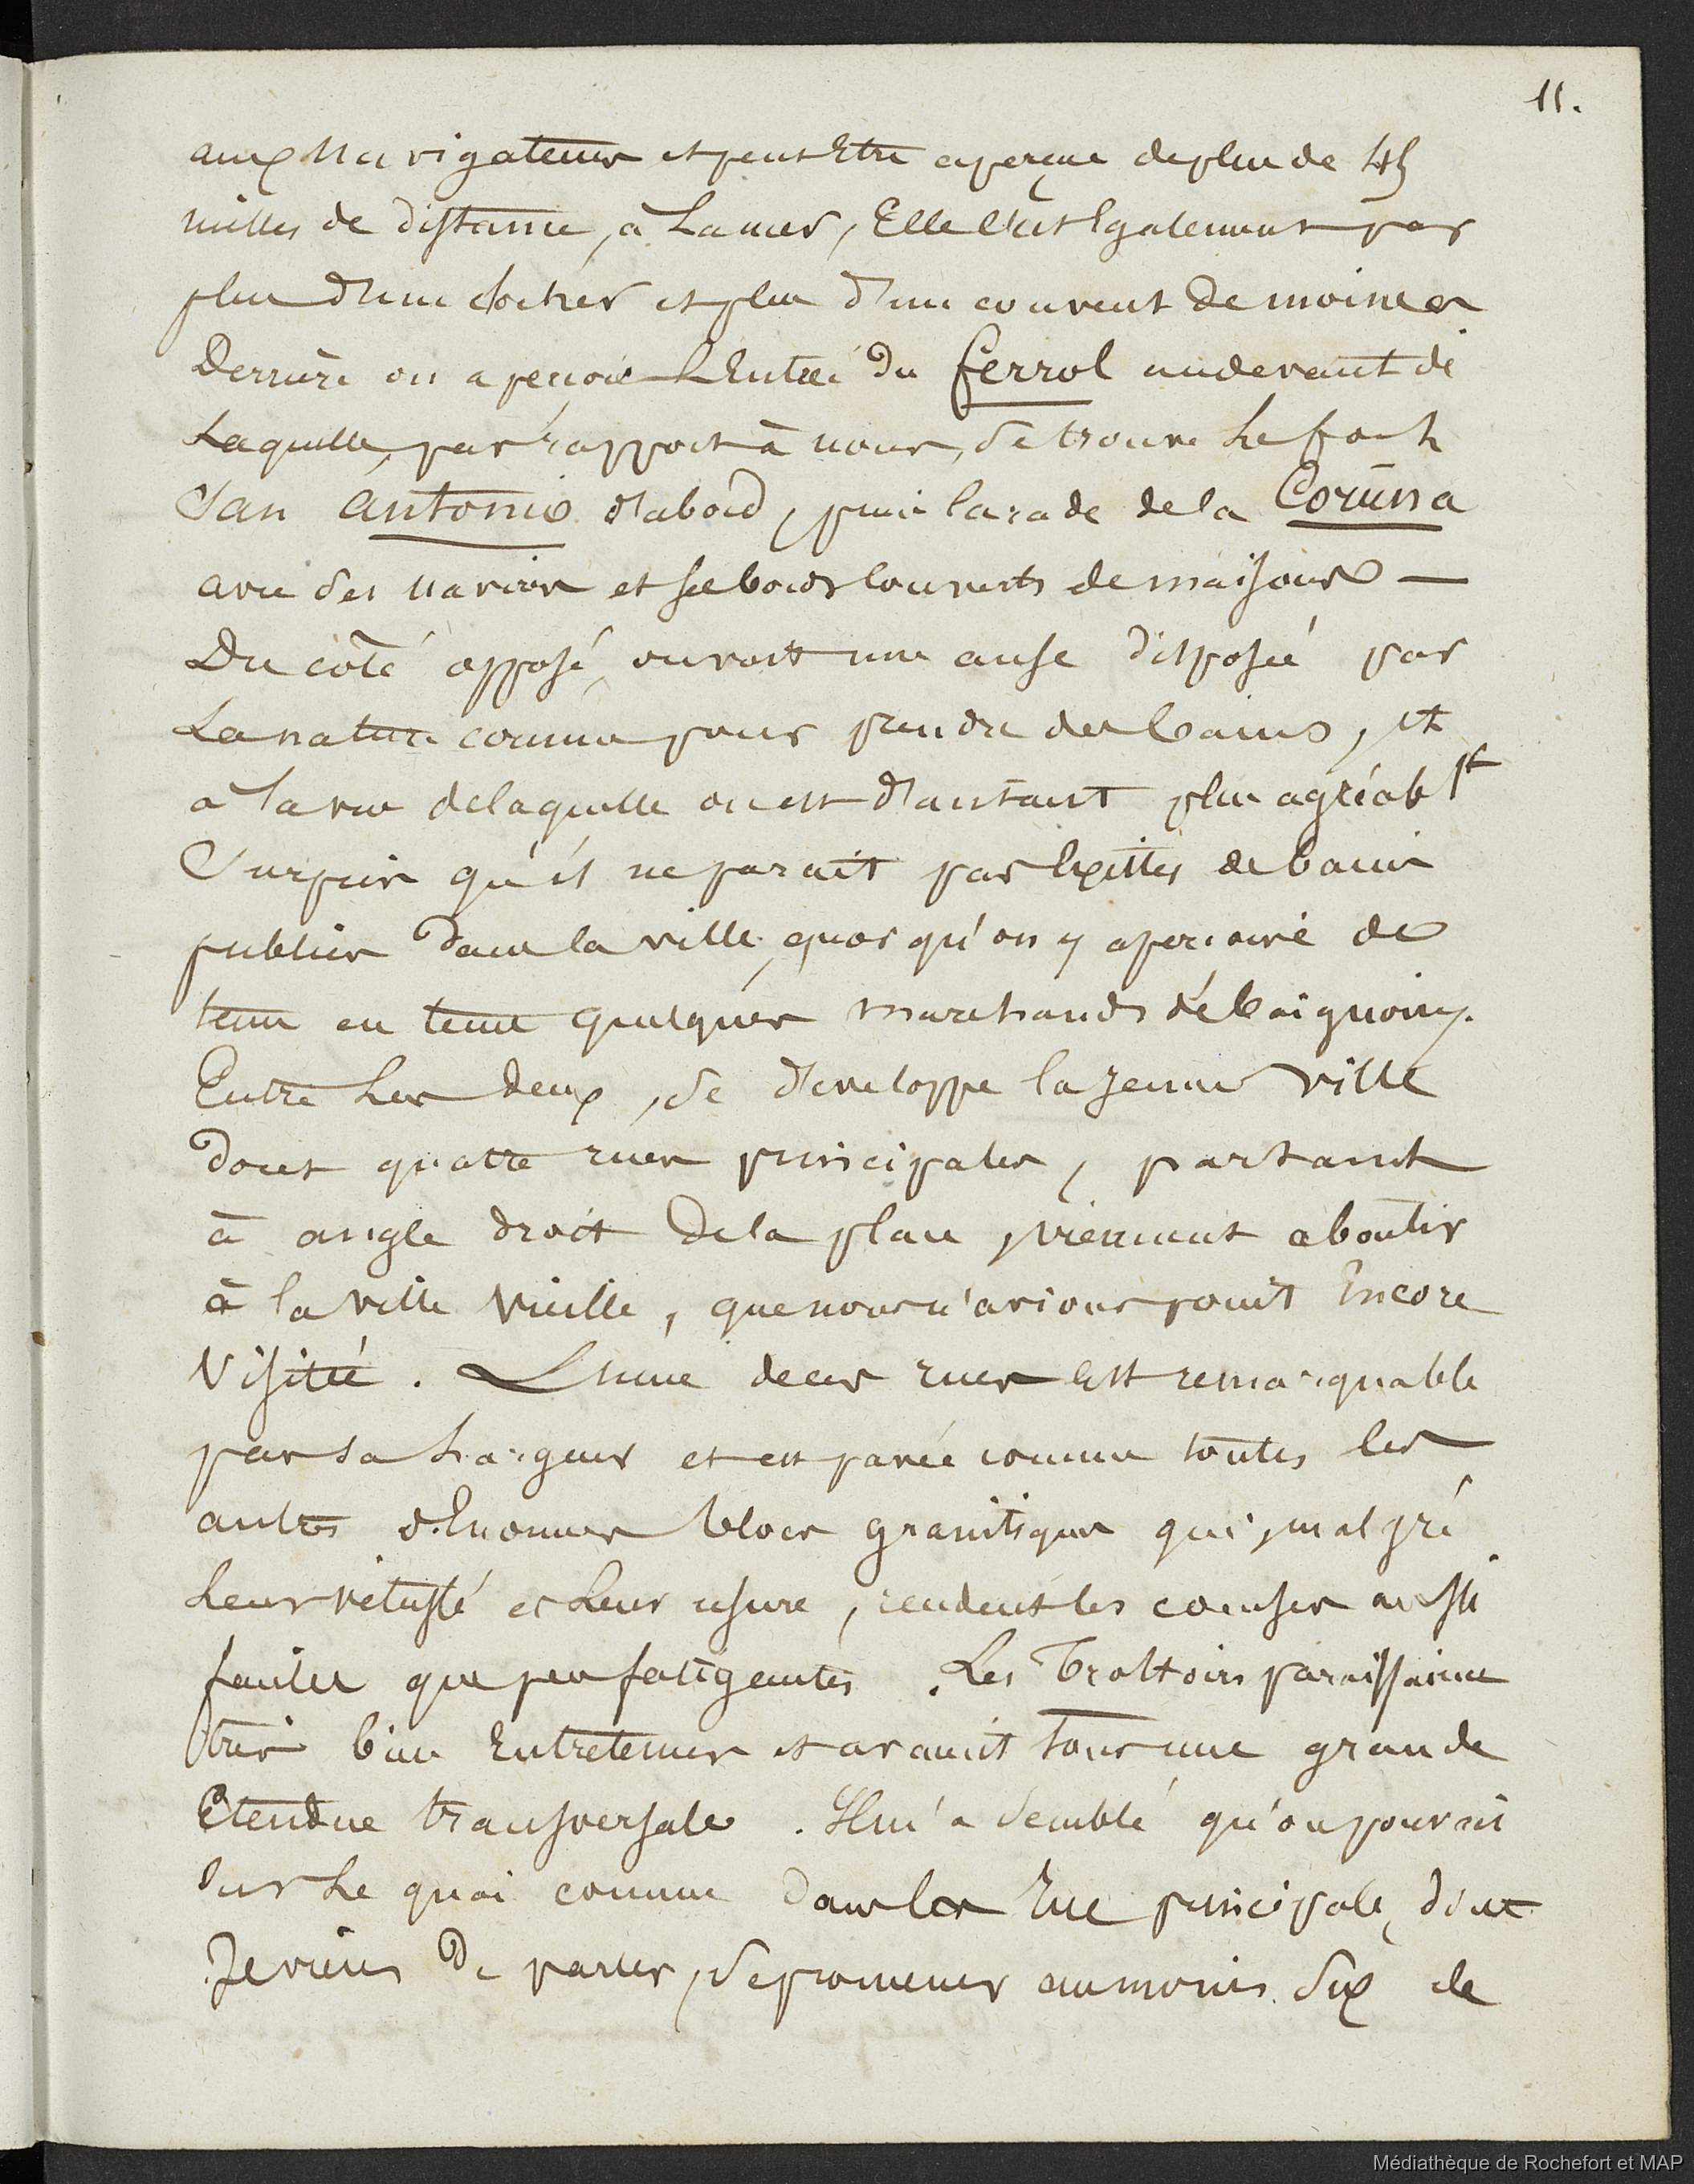 11.
aux Navigateurs et peut Etre aperçue de plus de 45
milles de distance, à La mer, Elle l'est Egalement par
plus d'un clocher et plus d'un couvent de moines
Derrière on aperçoit L'Entrée du Ferrol au devant de
Laquelle, par rapport à nous, se trouve Le fort
San Antonio d'abord, puis la rade de la Coruña
avec ses navires et ses bords couverts de maisons —
Du côté opposé, ouvroit une anse disposée par
La nature comme pour prendre des bains, et
à la vue de laquelle on est d'autant plus agréabt
Surpris qu'il ne parait pas Exister de bains
publics dans la ville, quoi qu'on y aperçoive de
tems en tems quelques marchands de baignoirs.
Entre Les deux, se développe la jeune ville
dont quatre rues principales, partant
à angle droit de la place, viennent aboutir
à la ville vieille, que nous n'avions point Encore
Visitée. L'une de ces rues est remarquable
par sa Largeur et est pavée comme toutes les
autres d'Enormes blocs granitiques qui, malgré
Leur vétusté et Leur usure, rendent les courses aussi
faciles que peu fatigantes. Les Trottoirs paraissaient
très bien Entretenus et avaient tous une grande
Etendue transversale. Il m'a semblé qu'on pouvait
sur Le quai comme dans la Rue principale, dont
Je viens De parler, se promener au moins six de